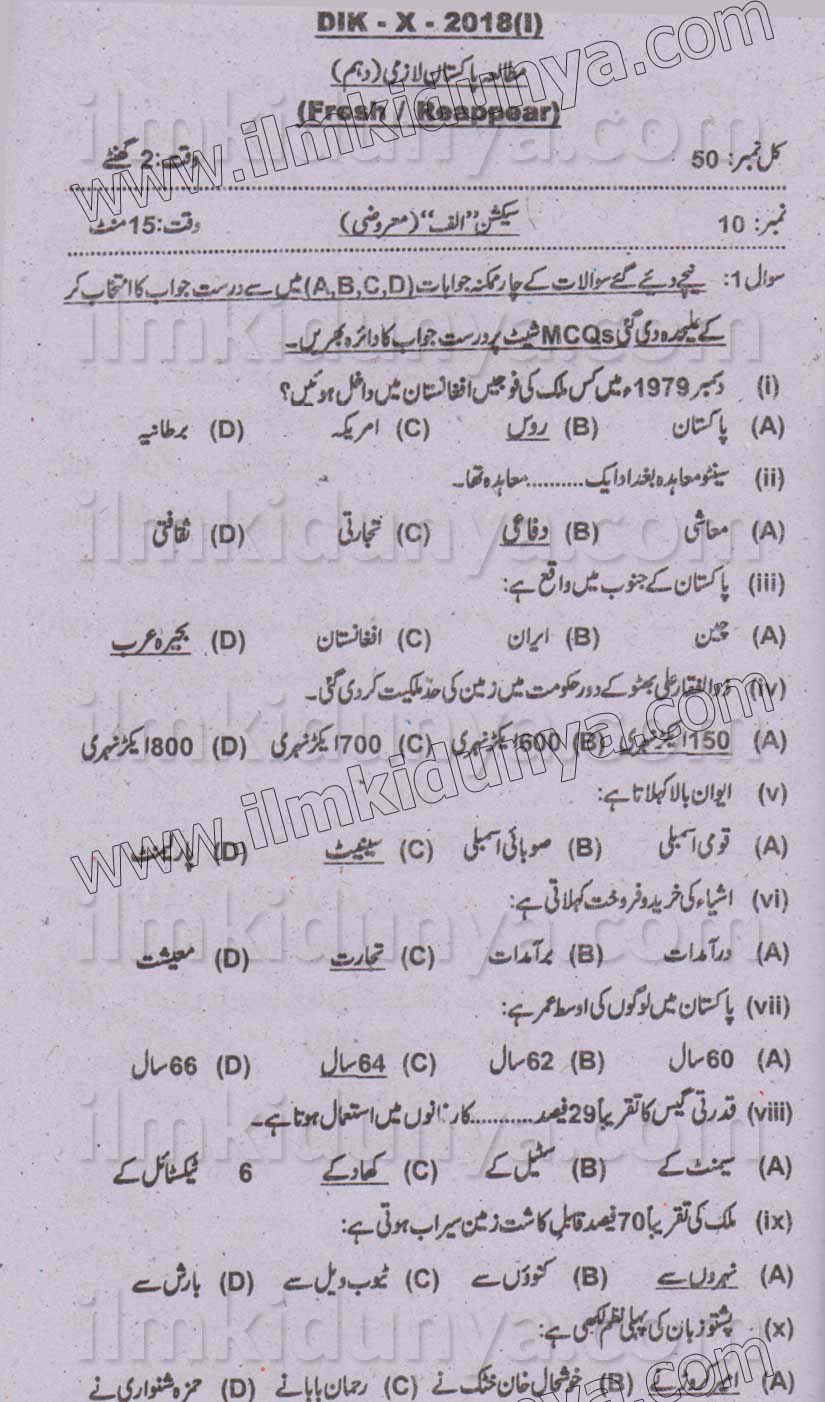 DIK - X - 2018(I)
مطالعہ پاکستان لازمی (دہم)
(Fresh / Reappear)
کل نمبر: 50 وقت: 2 گھنٹے
نمبر: 10 سیکشن "الف" (معروضی) وقت: 15 منٹ
سوال 1: نیچے دیئے گئے سوالات کے چار ممکنہ جوابات (A,B,C,D) میں سے درست جواب کا انتخاب کر
کے علیحدہ دی گئی MCQs شیٹ پر درست جواب کا دائرہ بھریں۔
(i) دسمبر 1979ء میں کس ملک کی فوجیں افغانستان میں داخل ہوئیں؟
(A) پاکستان (B) روس (C) امریکہ (D) برطانیہ
(ii) سینٹو معاہدہ بغداد ایک .......... معاہدہ تھا۔
(A) معاشی (B) دفاعی (C) تجارتی (D) ثقافتی
(iii) پاکستان کے جنوب میں واقع ہے:
(A) چین (B) ایران (C) افغانستان (D) بحیرہ عرب
(iv) ذوالفقار علی بھٹو کے دور حکومت میں زمین کی حد ملکیت کر دی گئی۔
(A) 150 ایکڑ نہری (B) 600 ایکڑ نہری (C) 700 ایکڑ نہری (D) 800 ایکڑ نہری
(v) ایوان بالا کہلاتا ہے:
(A) قومی اسمبلی (B) صوبائی اسمبلی (C) سینیٹ (D) پارلیمنٹ
(vi) اشیاء کی خرید و فروخت کہلاتی ہے:
(A) درآمدات (B) برآمدات (C) تجارت (D) معیشت
(vii) پاکستان میں لوگوں کی اوسط عمر ہے:
(A) 60 سال (B) 62 سال (C) 64 سال (D) 66 سال
(viii) قدرتی گیس کا تقریباً 29 فیصد .......... کارخانوں میں استعمال ہوتا ہے۔
(A) سیمنٹ کے (B) سٹیل کے (C) کھاد کے 6 ٹیکسٹائل کے
(ix) ملک کی تقریباً 70 فیصد قابل کاشت زمین سیراب ہوتی ہے:
(A) نہروں سے (B) کنوؤں سے (C) ٹیوب ویل سے (D) بارش سے
(x) پشتو زبان کی پہلی نظم لکھی ہے:
(A) امیر کروڑ نے (B) خوشحال خان خٹک نے (C) رحمان بابا نے (D) حمزہ شنواری نے
www.ilmkidunya.com
www.ilmkidunya.com
ilmkidunya.com
ilmkidunya.com
ilmkidunya.com
ilmkidunya.com
ilmkidunya.com
ilmkidunya.com
ilmkidunya.com